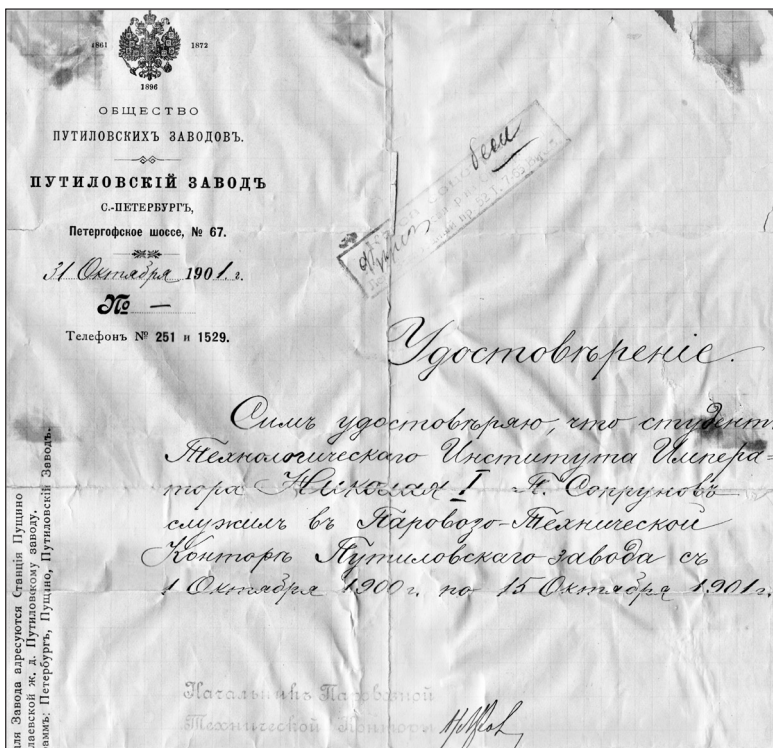 1861 1872
1896
ОБЩЕСТВО
ПУТИЛОВСКИХЪ ЗАВОДОВЪ.
ПУТИЛОВСКІЙ ЗАВОДЪ
С.-ПЕТЕРБУРГЪ,
Петергофское шоссе, № 67.
31 Октября 1901. г.
№ —
Телефонъ № 251 и 1529.
Удостовѣреніе.
Симъ удостовѣряю, что студентъ
Технологическаго Института Импера=
тора Николая I П. Сопруновъ
служилъ въ Паровозо-Технической
Конторѣ Путиловскаго завода съ
1 Октября 1900 г. по 15 Октября 1901 г.
Начальникъ Паровозной
Технической Конторы
для Завода адресуются Станція Пущино
лаевской ж. д. Путиловскому заводу.
раммъ: Петербургъ, Пущино, Путиловскій Заводъ.